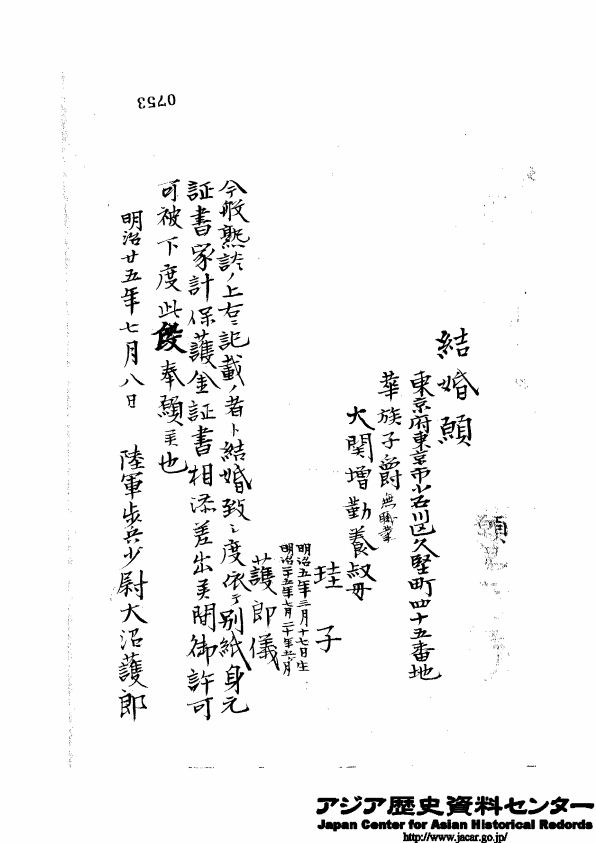 0753
結婚願
東京府東京市小石川区久堅町四十五番地
華族子爵無職業
大関増勤養叔母
珪子
明治五年三月十七日生
明治二十五年七月二十年五ヶ月
護郎儀
今般熟談ノ上右ニ記載ノ者ト結婚致シ度依テ別紙身元
証書家計保護金証書相添差出候間御許可
可被下度此段奉願候也
明治廿五年七月八日
陸軍歩兵少尉大沼護郎
アジア歴史資料センター
Japan Center for Asian Historical Redords
http://www.jacar.go.jp/